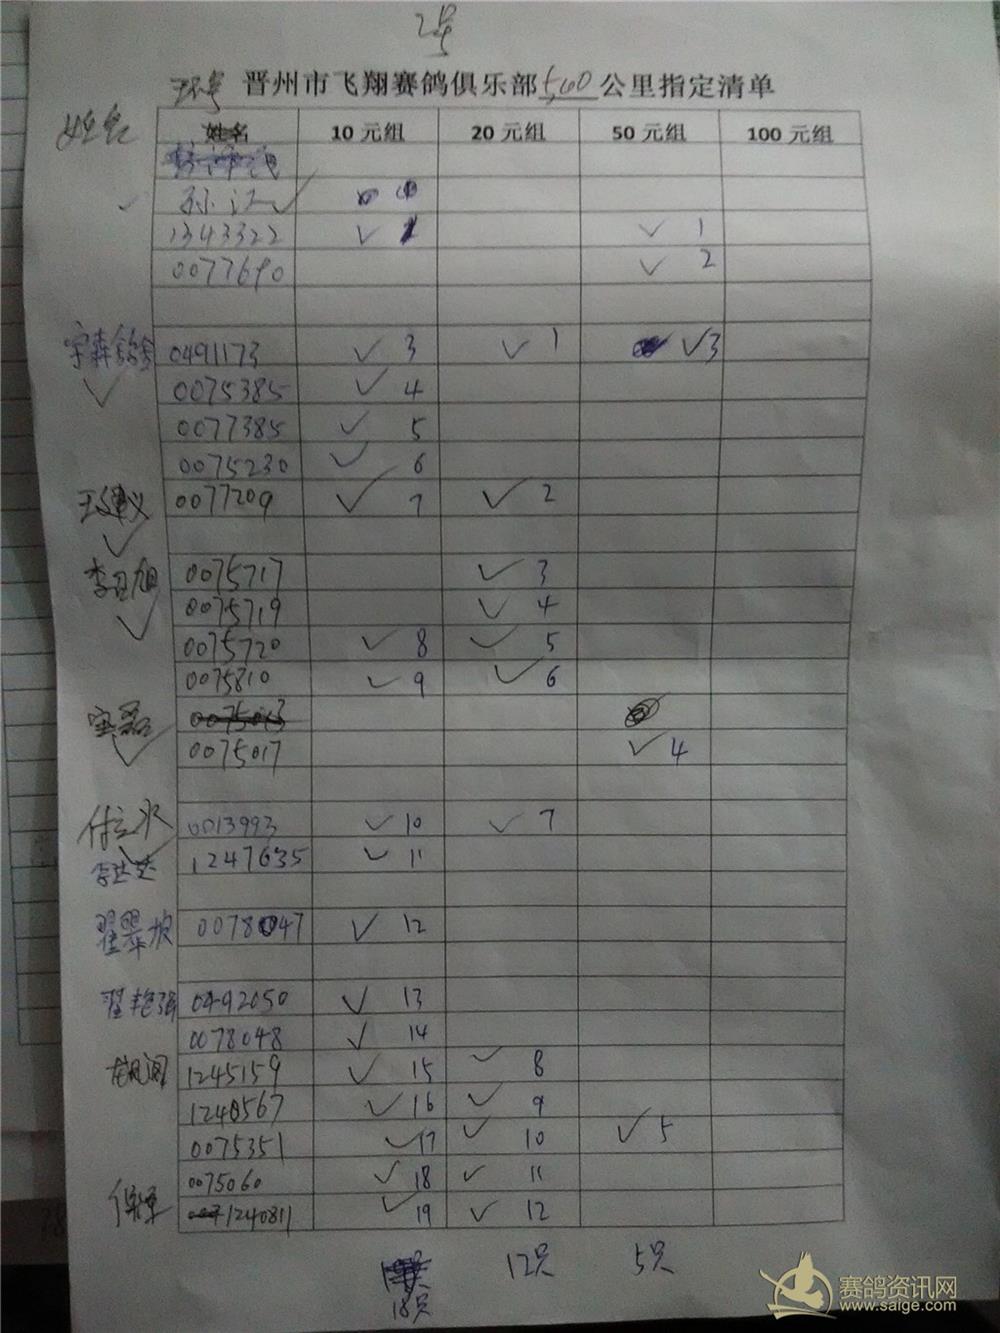 2号
环号 晋州市飞翔赛鸽俱乐部 500 公里指定清单
姓名 姓名 10 元组 20 元组 50 元组 100 元组
孙江 ✓
1343322 ✓ ✓ 1
0077690 ✓ 2
0491173 ✓ 3 ✓ 1 ✓ 3
0075385 ✓ 4
0077385 ✓ 5
0075230 ✓ 6
0077209 ✓ 7 ✓ 2
0075717 ✓ 3
0075719 ✓ 4
0075720 ✓ 8 ✓ 5
0075810 ✓ 9 ✓ 6
0075013
0075017 ✓ 4
付立永 0013993 ✓ 10 ✓ 7
1247635 ✓ 11
0078047 ✓ 12
0492050 ✓ 13
0078048 ✓ 14
1245159 ✓ 15 ✓ 8
1240567 ✓ 16 ✓ 9
0075351 ✓ 17 ✓ 10 ✓ 5
0075060 ✓ 18 ✓ 11
1240811 ✓ 19 ✓ 12
12只 5只
18只
赛鸽资讯网
www.saige.com